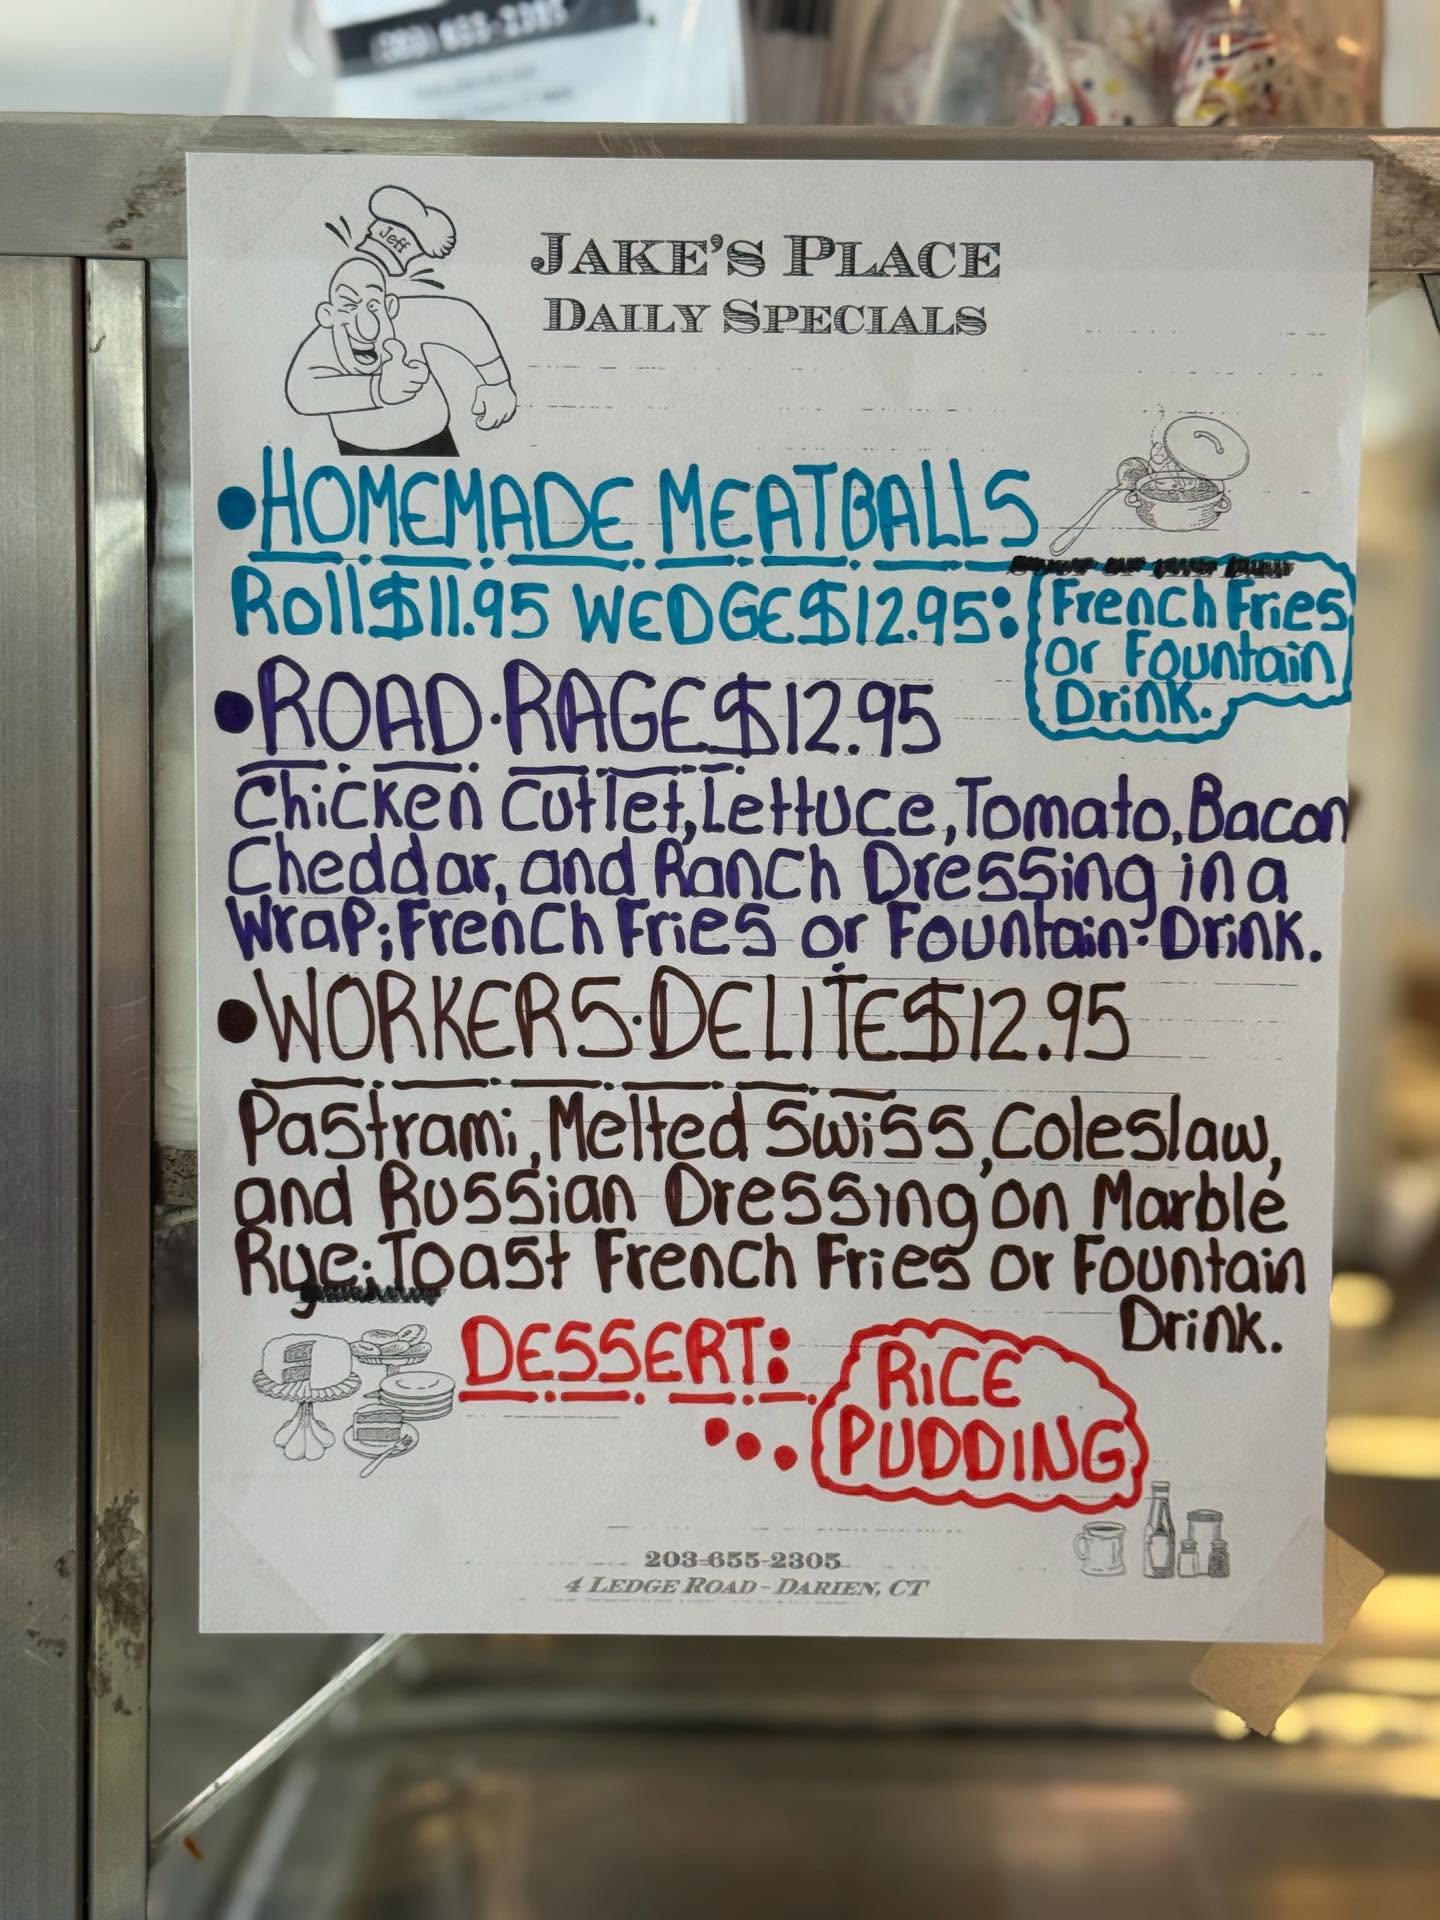 (203) 655-2305
Jeff
JAKE'S PLACE
DAILY SPECIALS
•HOMEMADE MEATBALLS
Roll $11.95 WEDGE $12.95:
French Fries
or Fountain
Drink.
•ROAD·RAGE $12.95
Chicken Cutlet, Lettuce, Tomato, Bacon
Cheddar, and Ranch Dressing in a
Wrap; French Fries or Fountain·Drink.
•WORKERS·DELITE $12.95
Pastrami, Melted Swiss, Coleslaw,
and Russian Dressing on Marble
Rye; Toast French Fries or Fountain
Drink.
DESSERT:
...
RiCE
PUDDING
203-655-2305
4 LEDGE ROAD - DARIEN, CT